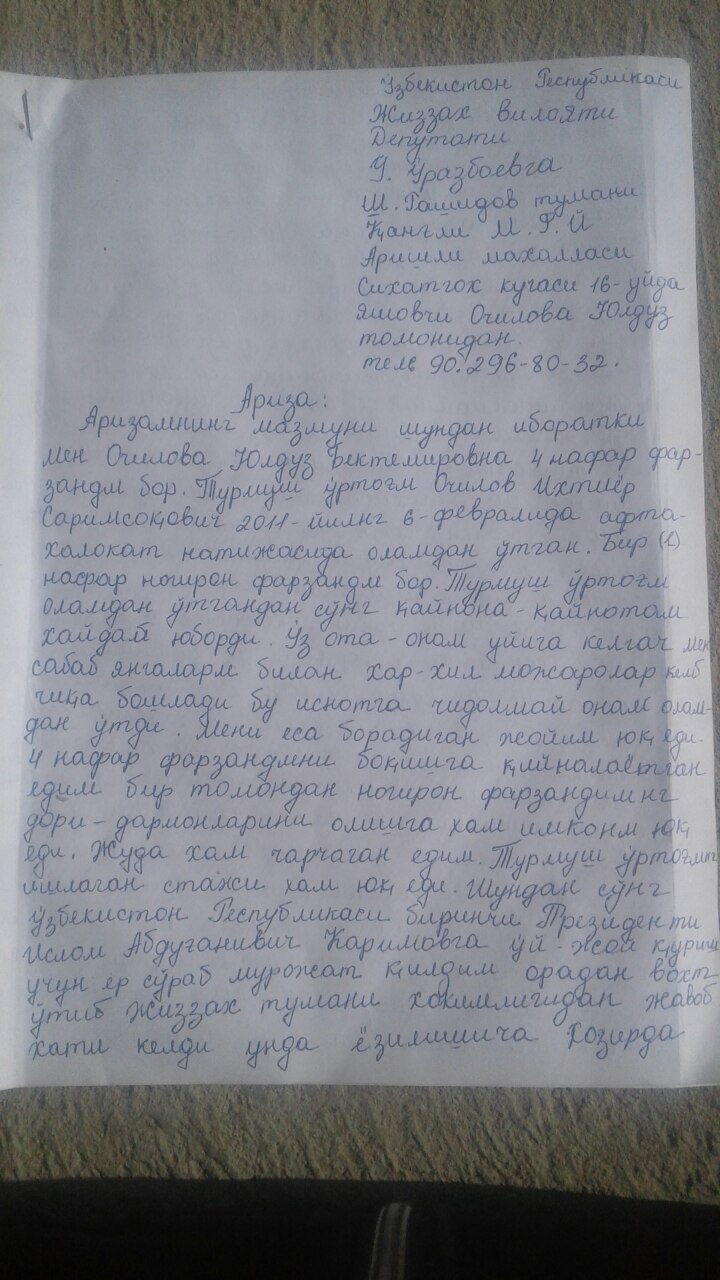 Ўзбекистон Республикаси
Жиззах вилояти
Депутати
Ў. Уразбоевга
Ш. Рашидов тумани
Қанғли М.Ф.Й
Аришли махалласи
Сихатгох кучаси 16-уйда
яшовчи Очилова Юлдуз
томонидан.
теле 90.296-80-32.
Ариза:
Аризамнинг мазмуни шундан иборатки
мен Очилова Юлдуз Бектемировна 4 нафар фар-
зандм бор. Турмуш ўртоғм Очилов Ихтиёр
Саримсоқович 2011-йилнг 6-февралида афта-
халокат натижасида оламдан ўтган. Бир (1)
нафар ногирон фарзандм бор. Турмуш ўртоғм
оламдан ўтгандан сўнг қайнона-қайнотам
хайдаб юборди. Ўз ота-онам уйига келгач мен
сабаб янгаларм билан хар-хил можаролар келб
чиқа бошлади бу иснотга чидолмай онам олам-
дан ўтди. Мени еса борадиган жойим юқ еди.
4 нафар фарзандмни боқишга қийналаётган
едим бир томондан ногирон фарзандимнг
дори-дармонларини олишга хам имконм юқ
еди. Жуда хам чарчаган едим. Турмуш ўртоғмнг
ишлаган стажи хам юқ еди. Шундан сўнг
Ўзбекистон Республикаси биринчи Президенти
Ислом Абдуғаниевич Каримовга уй-жой қуриш
учун ер сўраб мурожат қилдим орадан вохт
ўтиб Жиззах тумани хокимлигидан жавоб
хати келди унда ёзилишича Хозирда